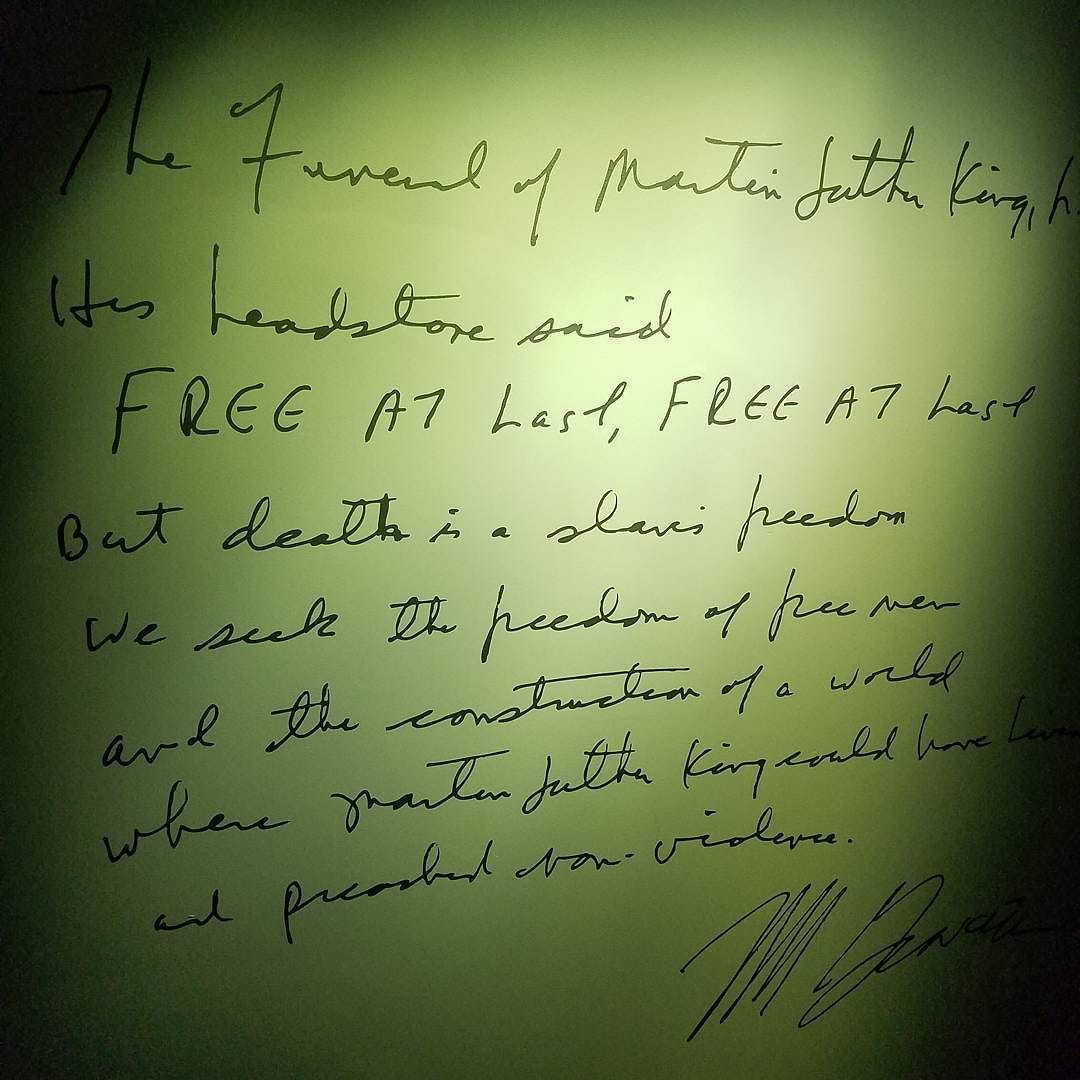 The Funeral of Martin Luther King, Jr.
His headstone said
FREE AT Last, FREE AT Last
But death is a slave's freedom
We seek the freedom of free men
and the construction of a world
where Martin Luther King could have lived
and preached non-violence.